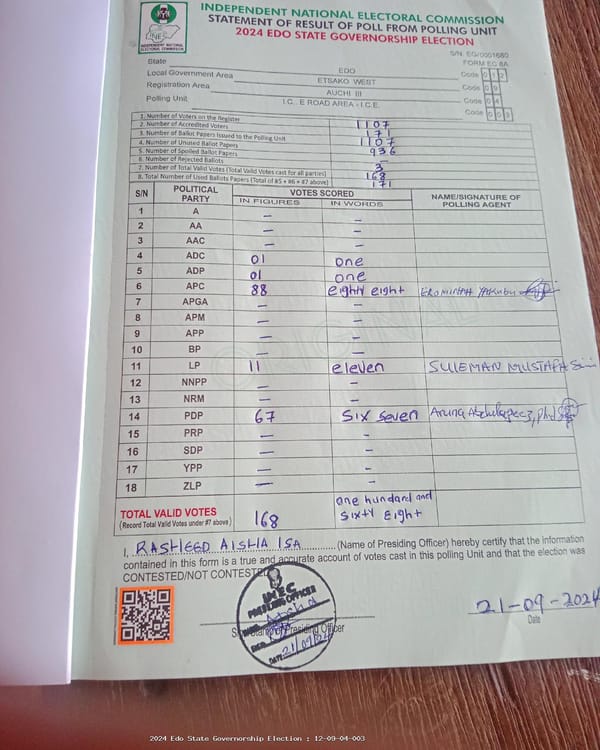 INDEPENDENT NATIONAL ELECTORAL COMMISSION
STATEMENT OF RESULT OF POLL FROM POLLING UNIT
2024 EDO STATE GOVERNORSHIP ELECTION
INEC
INDEPENDENT NATIONAL ELECTORAL COMMISSION
S/N. EG/0001680
FORM EC 8A
State EDO Code 1 2
Local Government Area ETSAKO WEST Code 0 9
Registration Area AUCHI III Code 0 4
Polling Unit I.C.. E ROAD AREA - I.C.E. Code 0 0 3
1. Number of Voters on the Register 1107
2. Number of Accredited Voters 171
3. Number of Ballot Papers Issued to the Polling Unit 1107
4. Number of Unused Ballot Papers 936
5. Number of Spoiled Ballot Papers –
6. Number of Rejected Ballots 3
7. Number of Total Valid Votes (Total Valid Votes cast for all parties) 168
8. Total Number of Used Ballots Papers (Total of #5 + #6 + #7 above) 171
S/N POLITICAL PARTY VOTES SCORED NAME/SIGNATURE OF POLLING AGENT
IN FIGURES IN WORDS
1 A – –
2 AA – –
3 AAC – –
4 ADC 01 one
5 ADP 01 one
6 APC 88 eighty eight
7 APGA – –
8 APM – –
9 APP – –
10 BP – –
11 LP 11 eleven SULEMAN MUSTAFA
12 NNPP – –
13 NRM – –
14 PDP 67 six seven Aruna
15 PRP – –
16 SDP – –
17 YPP – –
18 ZLP – –
TOTAL VALID VOTES 168 one hundred and sixty eight
(Record Total Valid Votes under #7 above)
ORIGINAL
I, RASHEED AISHA ISA (Name of Presiding Officer) hereby certify that the information
contained in this form is a true and accurate account of votes cast in this polling Unit and that the election was
CONTESTED/NOT CONTESTED
INEC
PRESIDING OFFICER
DATE: 21/09/
Presiding Officer
21-09-2024
Date
2024 Edo State Governorship Election : 12-09-04-003